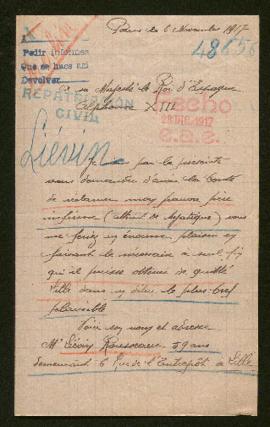 Paris le 6 Novembre 1917
48656
Pedir informes
Que se haga así
Devolver
REPATRIACIÓN
CIVIL
sa Majesté le Roi d'Espagne
Alphonse XIII
Hecho
28 DIC. 1917
e.a.e.
Liévin
Je par la présente
vous demander d'avoir la bonté
de mon pauvre père
infirme (atteint de ) vous
me feriez un énorme plaisir en
faisant le nécessaire
qu'il puisse obtenir de quitter
Lille dans un délai le plus bref
Voici son nom et adresse
Mr Liévin Rousseau 59 ans
demeurant 6 Rue de l'Entrepôt à Lille